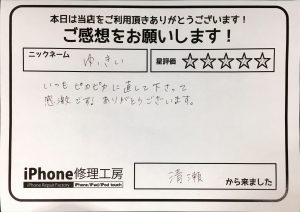 本日は当店をご利用頂きありがとうございます!
ご感想をお願いします!
ニックネーム ゆぅきぃ 星評価 ☆☆☆☆☆
いつもピカピカに直して下さって
感激です!ありがとうございます。
iPhone修理工房
iPhone Repair Factory iPhone/iPad/iPod touch
清瀬 から来ました